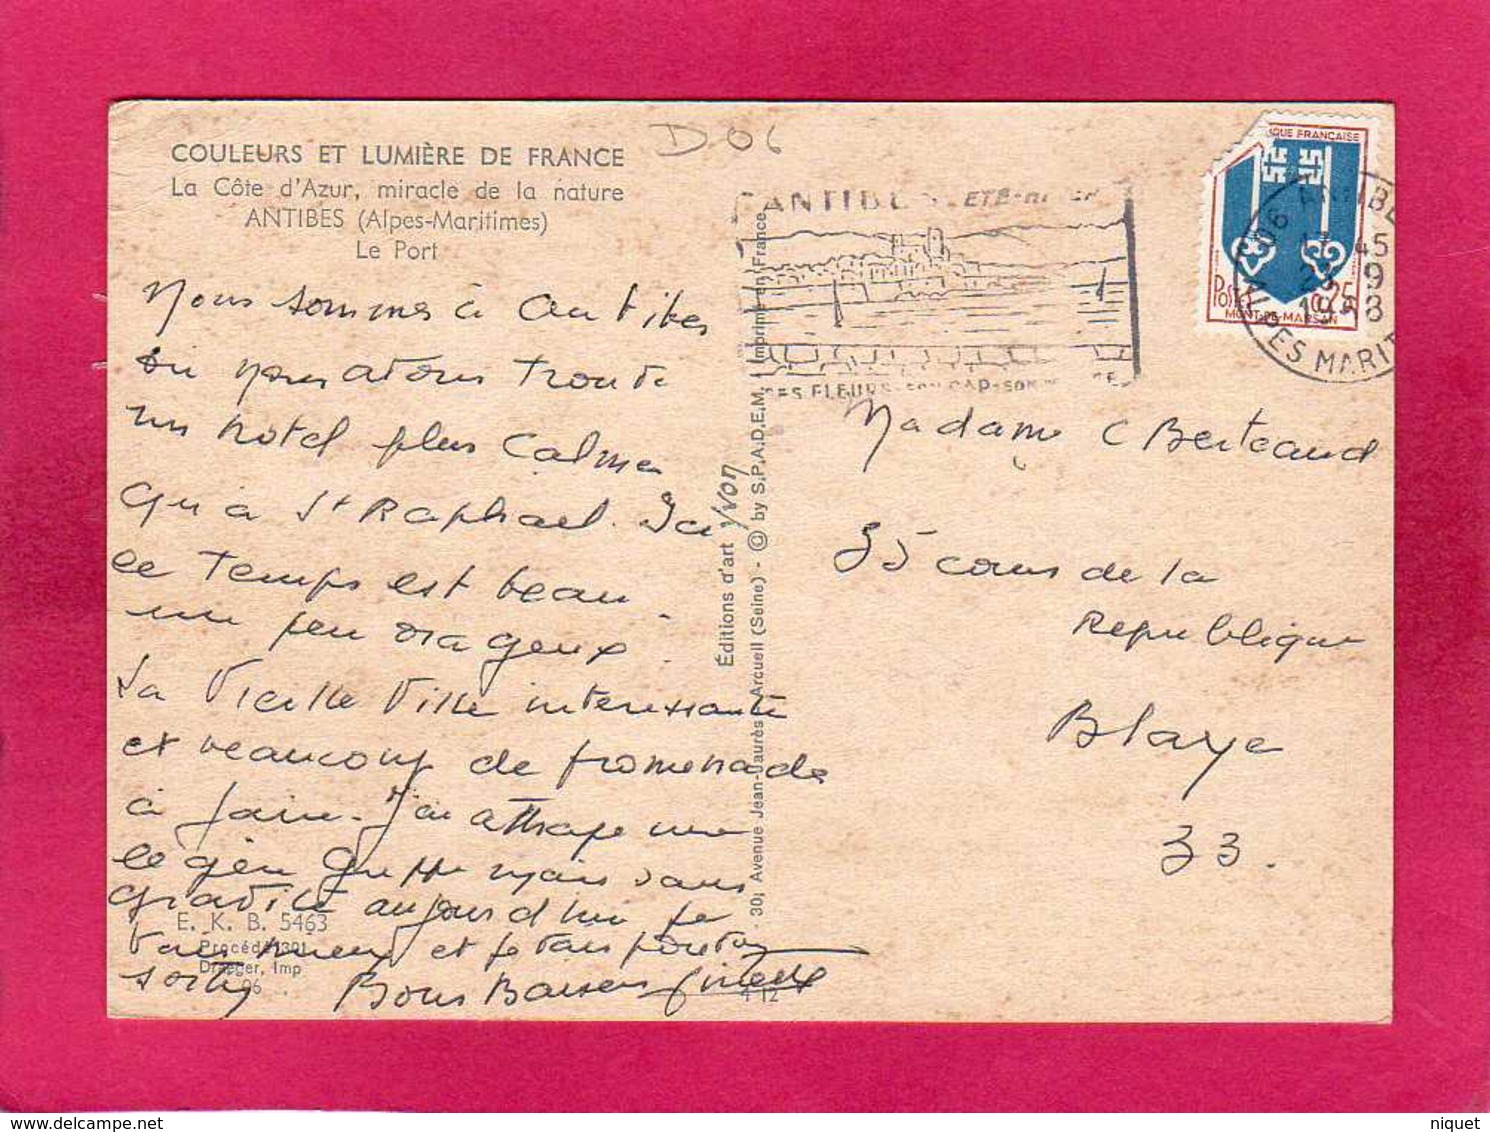 COULEURS ET LUMIÈRE DE FRANCE
La Côte d'Azur, miracle de la nature
ANTIBES (Alpes-Maritimes)
Le Port
D06
Nous sommes à Antibes
où nous avons trouvé
un hotel plus calme
qu'à St Raphael. Ici
le temps est beau.
un peu orageux.
La Vieille Ville interessante
et beaucoup de promenade
à faire. J'ai attrapé une
legère grippe mais sans
gravité aujourd'hui je
vais mieux et je vais pouvoir
sortir Bons Baisers Ginette
E. K. B. 5463
Procédé 1301
Draeger, Imp
96
4-12
Éditions d'art Yvon
30, Avenue Jean-Jaurès Arcueil (Seine) - © by S.P.A.D.E.M. Imprimé en France
ANTIBES ETE-HIVER
SES FLEURS-SON CAP-SON
QUE FRANÇAISE
POSTES 0,25
MONT-DE-MARSAN
06 ANTIBES
45
9
1968
ALPES MARIT
Madame C Berteaud
35 cours de la
Republique
Blaye
33.
niquet
www.delcampe.net